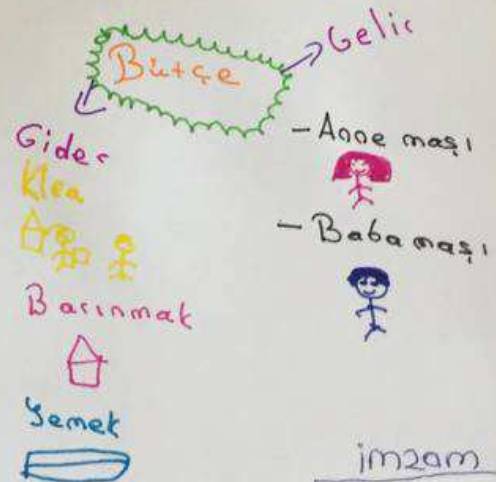 Bütçe
Gelir
Gider
Kira
Barınmak
Yemek
- Anne maşı
- Baba maşı
imzam